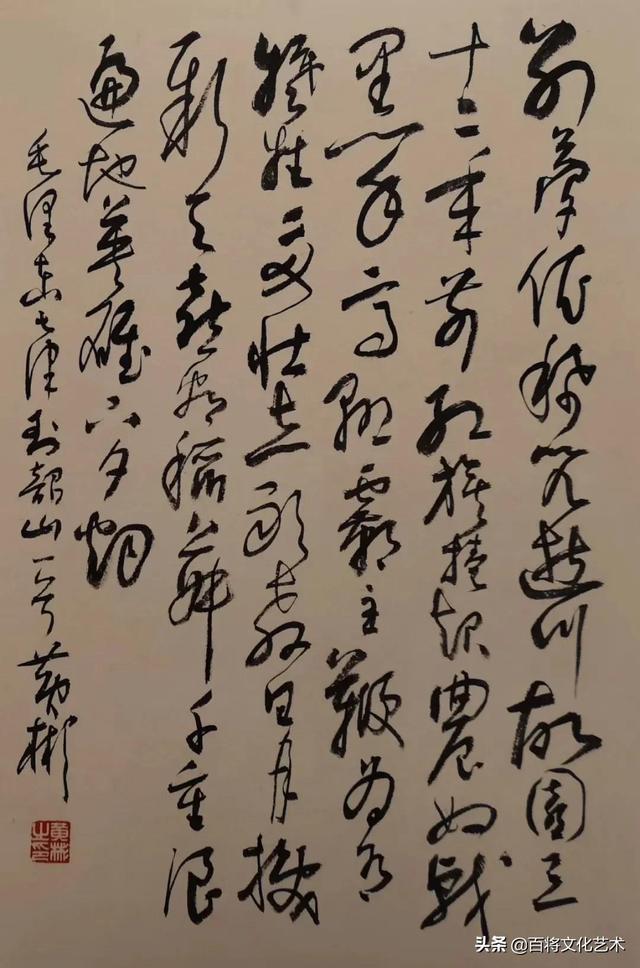 别夢依稀咒逝川故園三
十二年前红旗捲起農奴戟
黑手高悬霸主鞭为有
犧牲多壮志敢教日月换
新天喜看稻菽千重浪
遍地英雄下夕烟
毛泽东七律到韶山一首 黄彬
黄彬之印
头条 @百将文化艺术